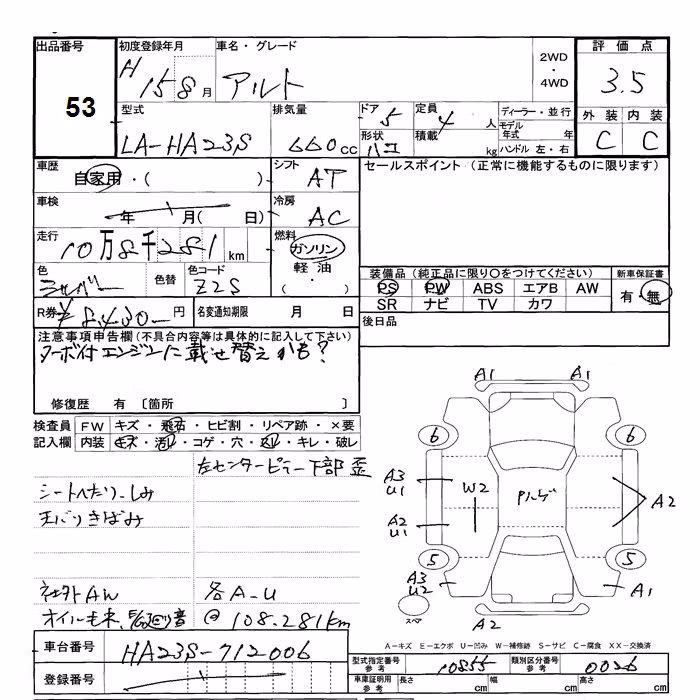 出品番号 初度登録年月 車名・グレード 2WD・4WD 評価点
53 H 15 8月 アルト 3.5
型式 排気量 ドア 5 定員 4人 ディーラー・並行 外装 内装
LA-HA23S 660cc 形状 ハコ 積載 kg モデル年式 年 C C
ハンドル 左・右
車歴 シフト セールスポイント (正常に機能するものに限ります)
自家用・( ) AT
車検 冷房
年 月( 日) AC
走行 燃料
10万8千281km ガソリン
色 色替 色コード 軽油
シルバー Z2S ・( )
装備品 (純正品に限り〇をつけてください) 新車保証書
PS PW ABS エアB AW 有・無
SR ナビ TV カワ
R券 ¥8,430-円 名変通知期限 月 日
後日品
注意事項申告欄(不具合内容等は具体的に記入して下さい)
ターボ付エンジンに載せ替えかも?
修復歴 有 〔箇所 〕
検査員 FW キズ・飛石・ヒビ割・リペア跡・×要
記入欄 内装 キズ・汚れ・コゲ・穴・スレ・キレ・破レ
左センターピラー下部歪
シートへたり、しみ
天バリきばみ
社外AW 各A-U
@ 108.281km
A1 A1
6 6
A3
U1 W2 Pルーフ A2
A2
U1
5 5
A3
U2 A1
スペア A2
A-キズ E-エクボ U-凹み W-補修跡 S-サビ C-腐食 XX-交換済
車台番号 HA23S-712006
登録番号
型式指定番号 参考 10855 類別区分番号 参考 0026
車庫証明用 参考 長さ cm 幅 cm 高さ cm